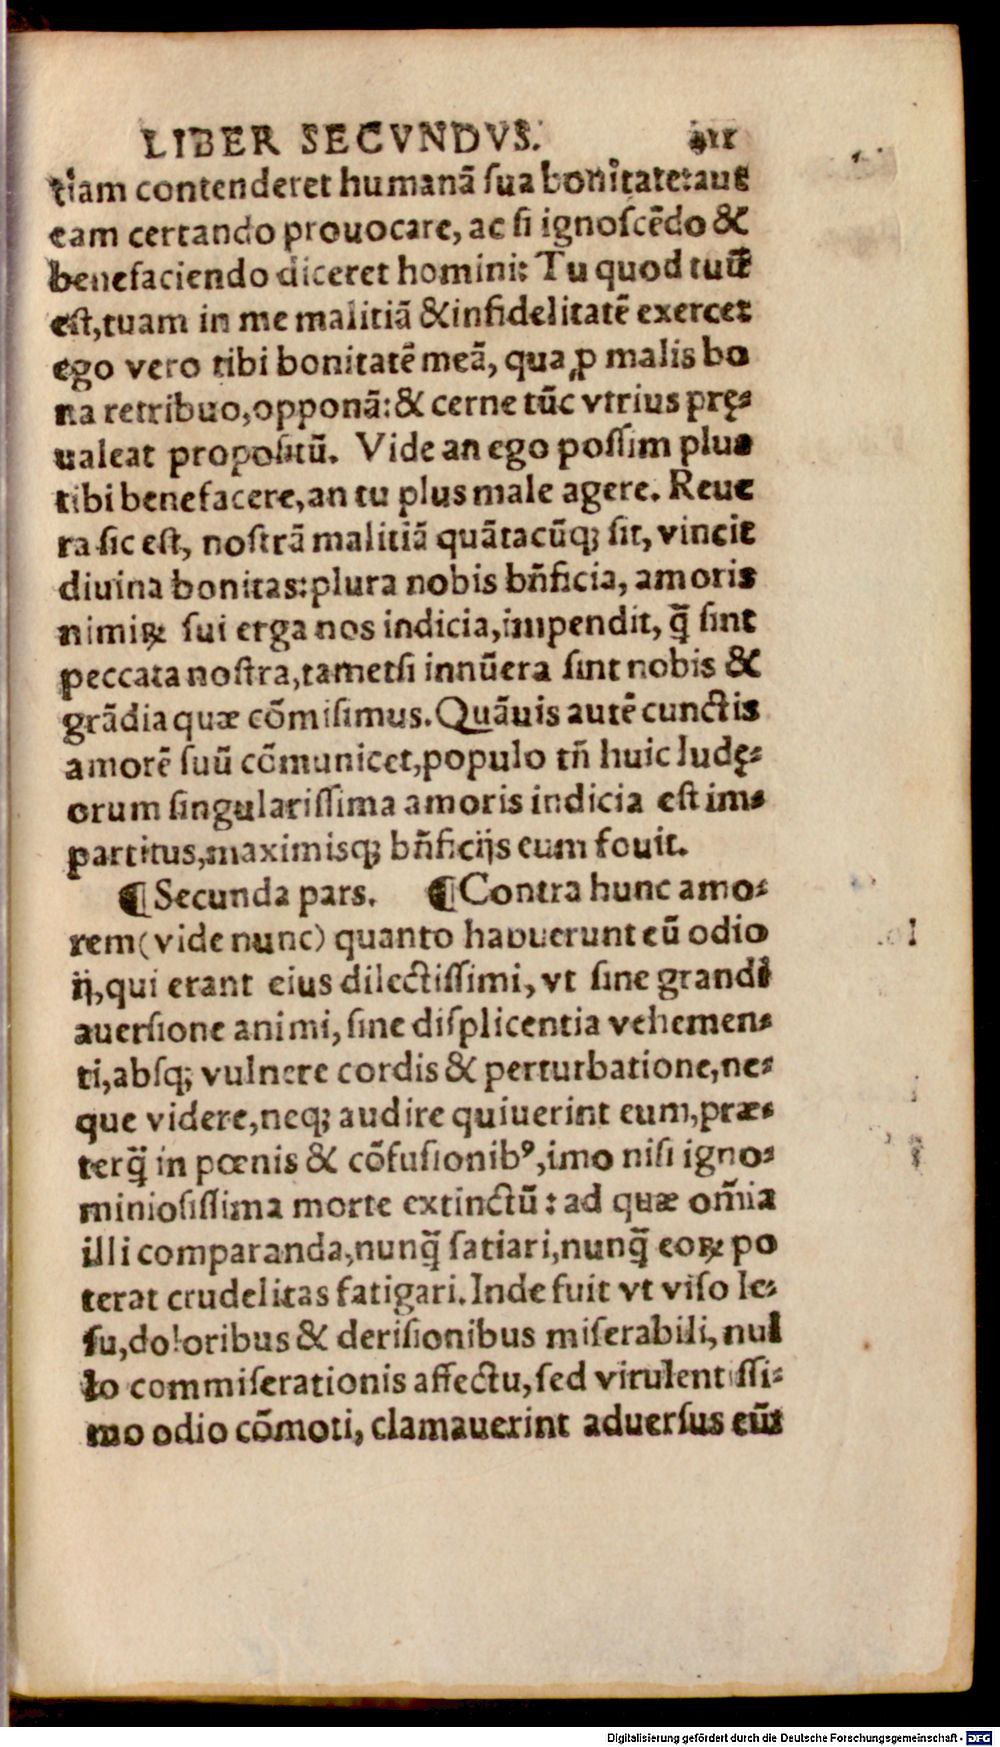 LIBER SECVNDVS. 411
tiam contenderet humanã sua bonitate: aut
eam certando prouocare, ac si ignoscẽdo &
benefaciendo diceret homini: Tu quod tuũ
est, tuam in me malitiã & infidelitatẽ exerces
ego vero tibi bonitatẽ meã, qua ꝓ malis bo
na retribuo, opponã: & cerne tũc vtrius prę-
ualeat propositũ. Vide an ego possim plus
tibi benefacere, an tu plus male agere. Reue
ra sic est, nostrã malitiã quãtacũqꝫ sit, vincit
diuina bonitas: plura nobis bñficia, amoris
nimiꝝ sui erga nos indicia, impendit, q̃ sint
peccata nostra, tametsi innũera sint nobis &
grãdia quæ cõmisimus. Quãuis autẽ cunctis
amorẽ suũ cõmunicet, populo tñ huic Iudę-
orum singularissima amoris indicia est im-
partitus, maximisqꝫ bñficijs eum fouit.
¶ Secunda pars. ¶ Contra hunc amo-
rem (vide nunc) quanto habuerunt eũ odio
ij, qui erant eius dilectissimi, vt sine grandi
auersione animi, sine displicentia vehemen-
ti, absqꝫ vulnere cordis & perturbatione, ne-
que videre, neqꝫ audire quiuerint eum, præ-
terq̃ in pœnis & cõfusionibꝰ, imo nisi igno-
miniosissima morte extinctũ: ad quæ om̃ia
illi comparanda, nunq̃ satiari, nunq̃ eoꝝ po
terat crudelitas fatigari. Inde fuit vt viso Ie-
su, doloribus & derisionibus miserabili, nul
lo commiserationis affectu, sed virulentissi-
mo odio cõmoti, clamauerint aduersus eũ:
Digitalisierung gefördert durch die Deutsche Forschungsgemeinschaft - DFG